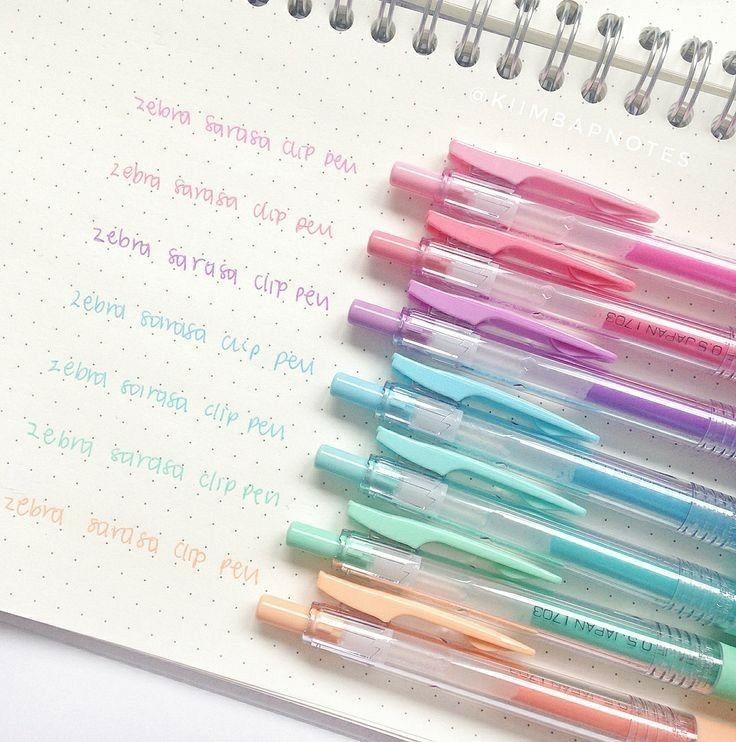 @KIIMBAPNOTES
zebra sarasa clip pen
zebra sarasa clip pen
zebra sarasa clip pen
zebra sarasa clip pen
zebra sarasa clip pen
zebra sarasa clip pen
zebra sarasa clip pen
0.5 JAPAN 1703
0.5 JAPAN 1703
0.5 JAPAN